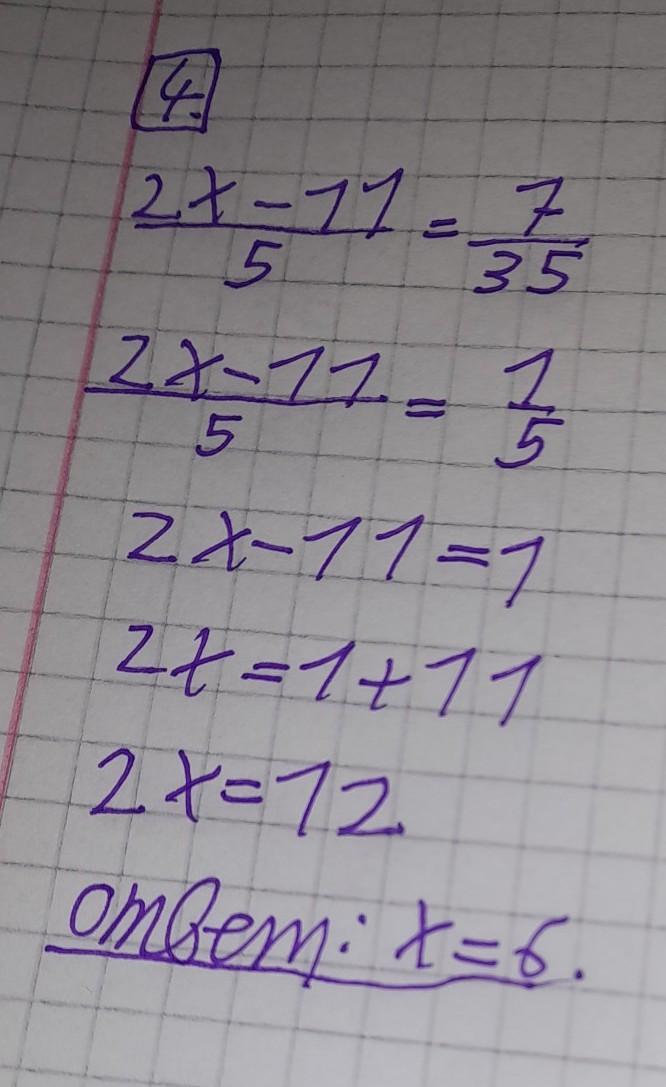 4.
2x-11/5 = 7/35
2x-11/5 = 1/5
2x-11=1
2x=1+11
2x=12
ответ: x=6.